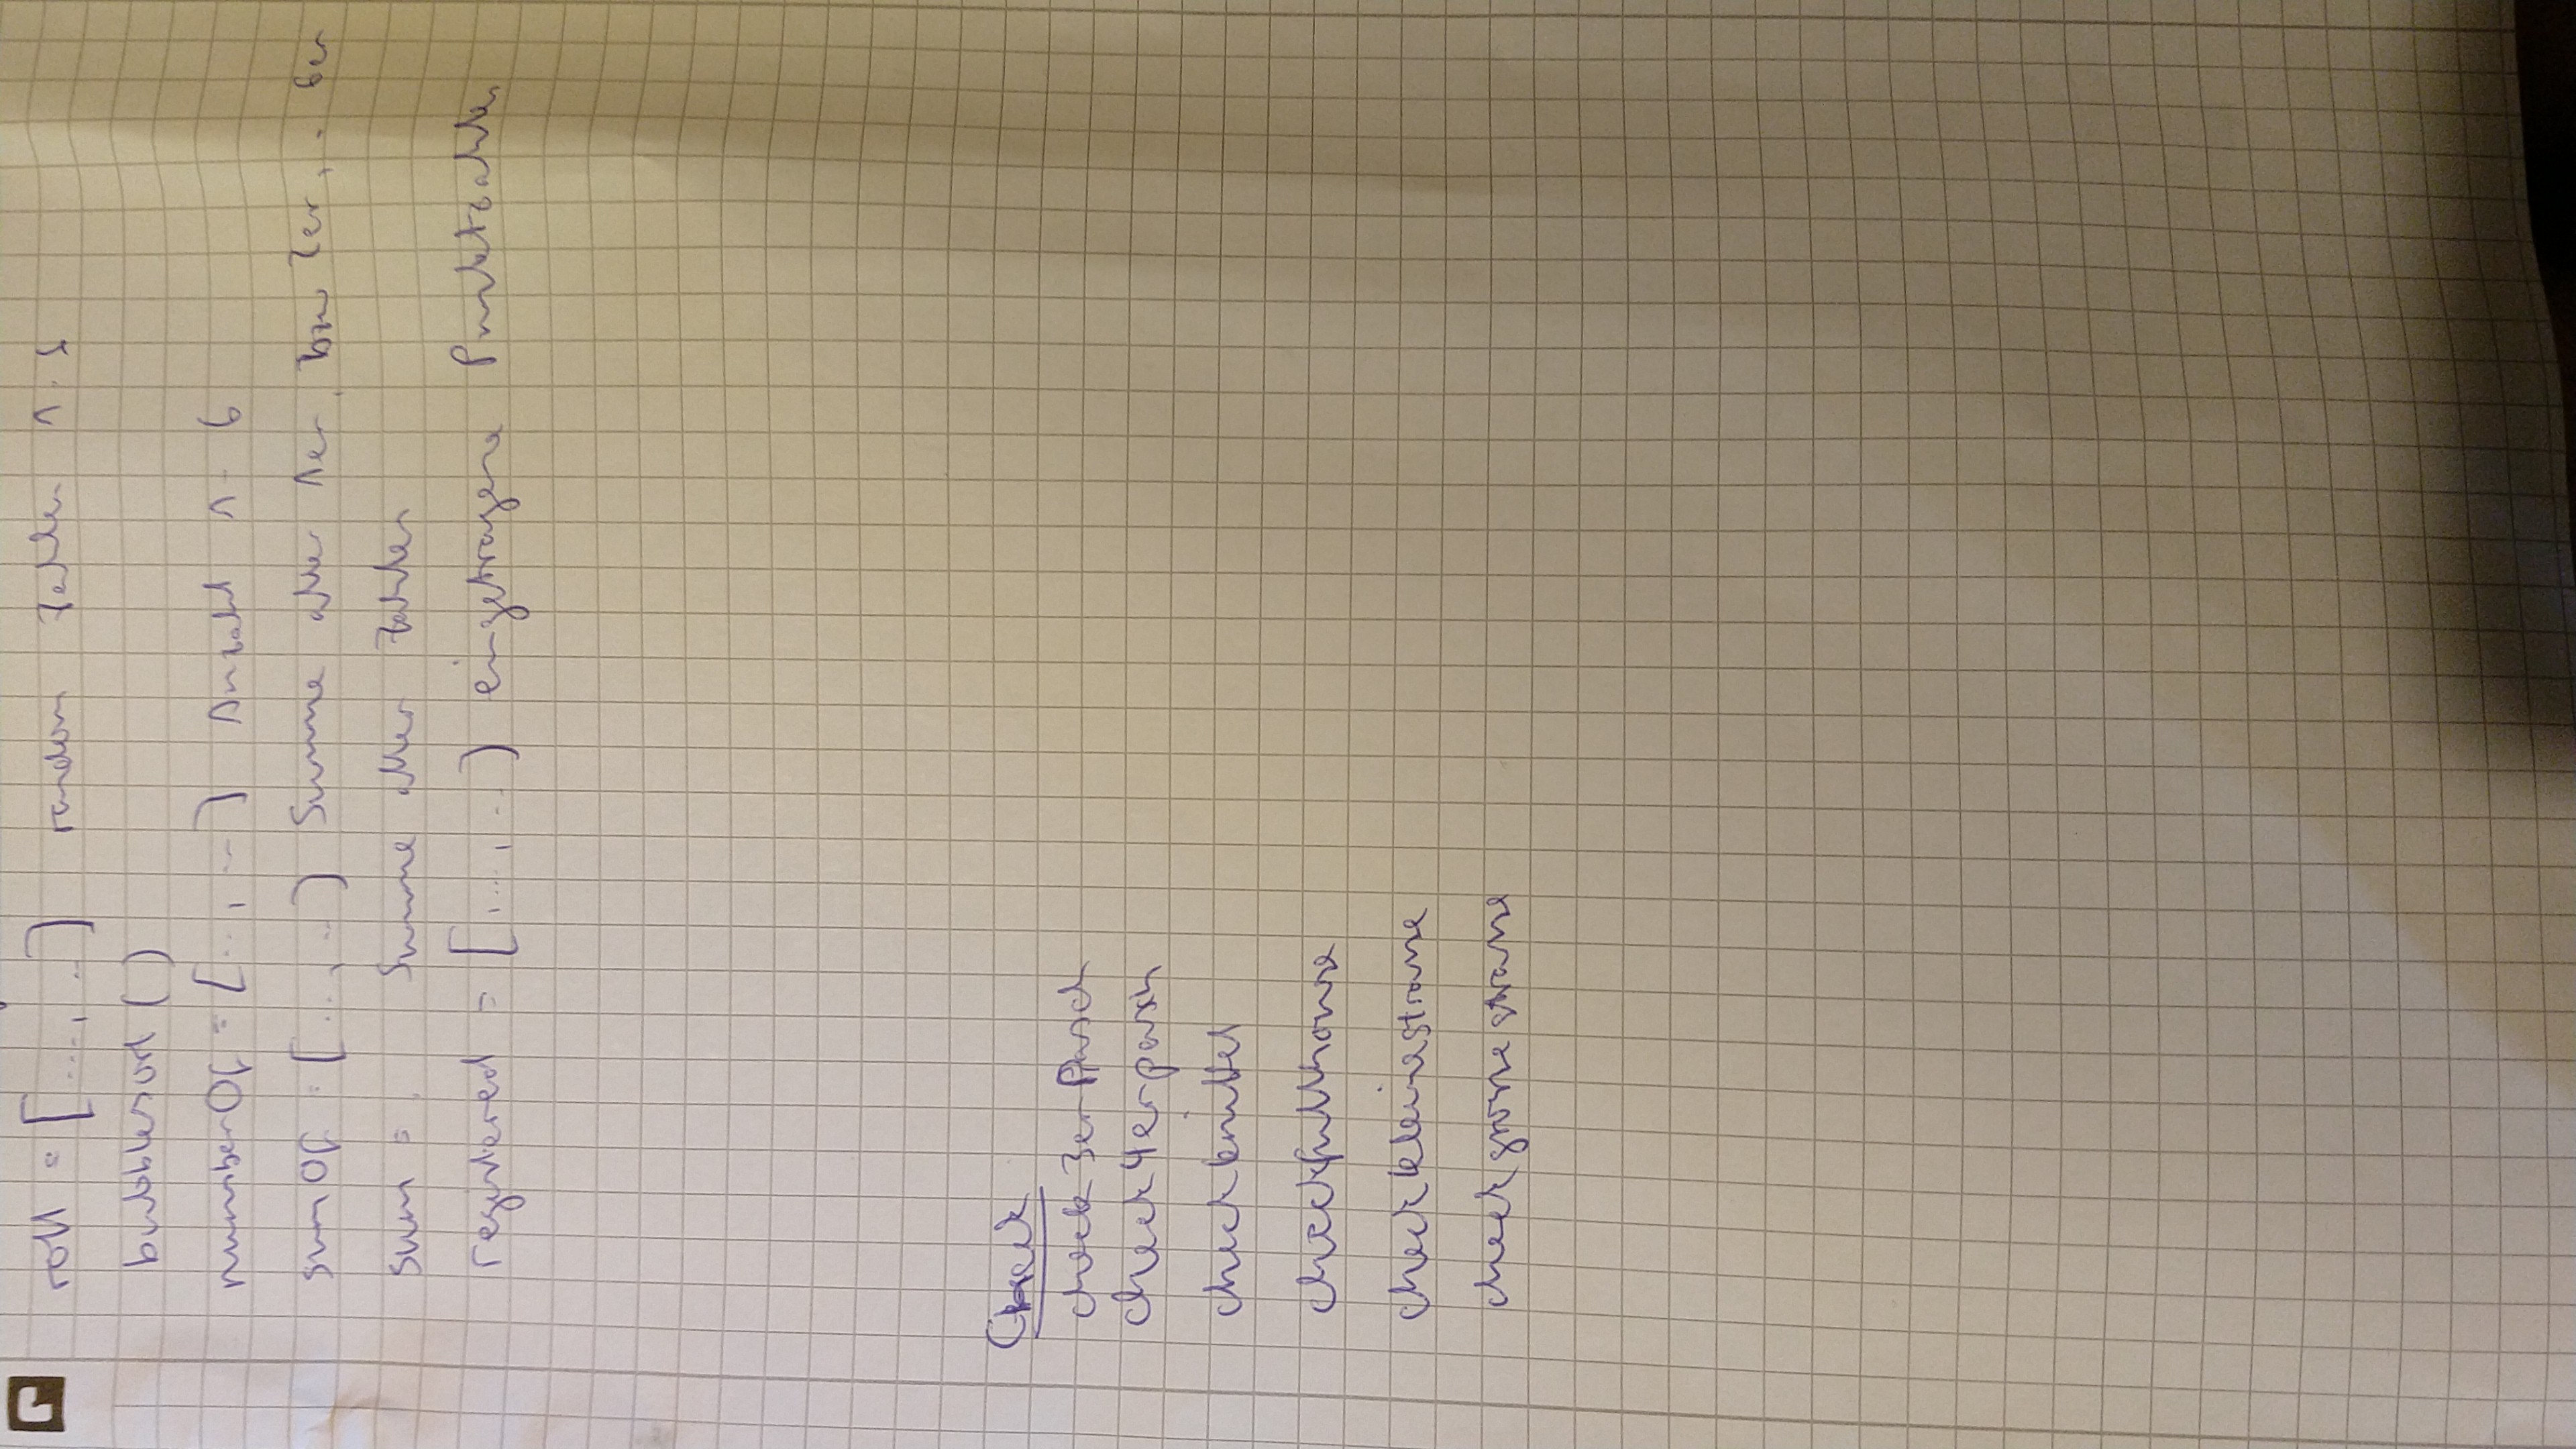 roll = [...,..] random Zahlen 1-5
bubblesort ()
numberOf = [..,..] Anzahl 1-6
sumOf = [..,..] Summe aller 1er bzw 2er, .. 6er
sum = Summe aller Zahlen
registered = [...,..] eingetragene Punktzahlen
Check
check3erPasch
check4erpasch
checkkniffel
checkfullhouse
checkkleinestrasse
checkgrossestrasse